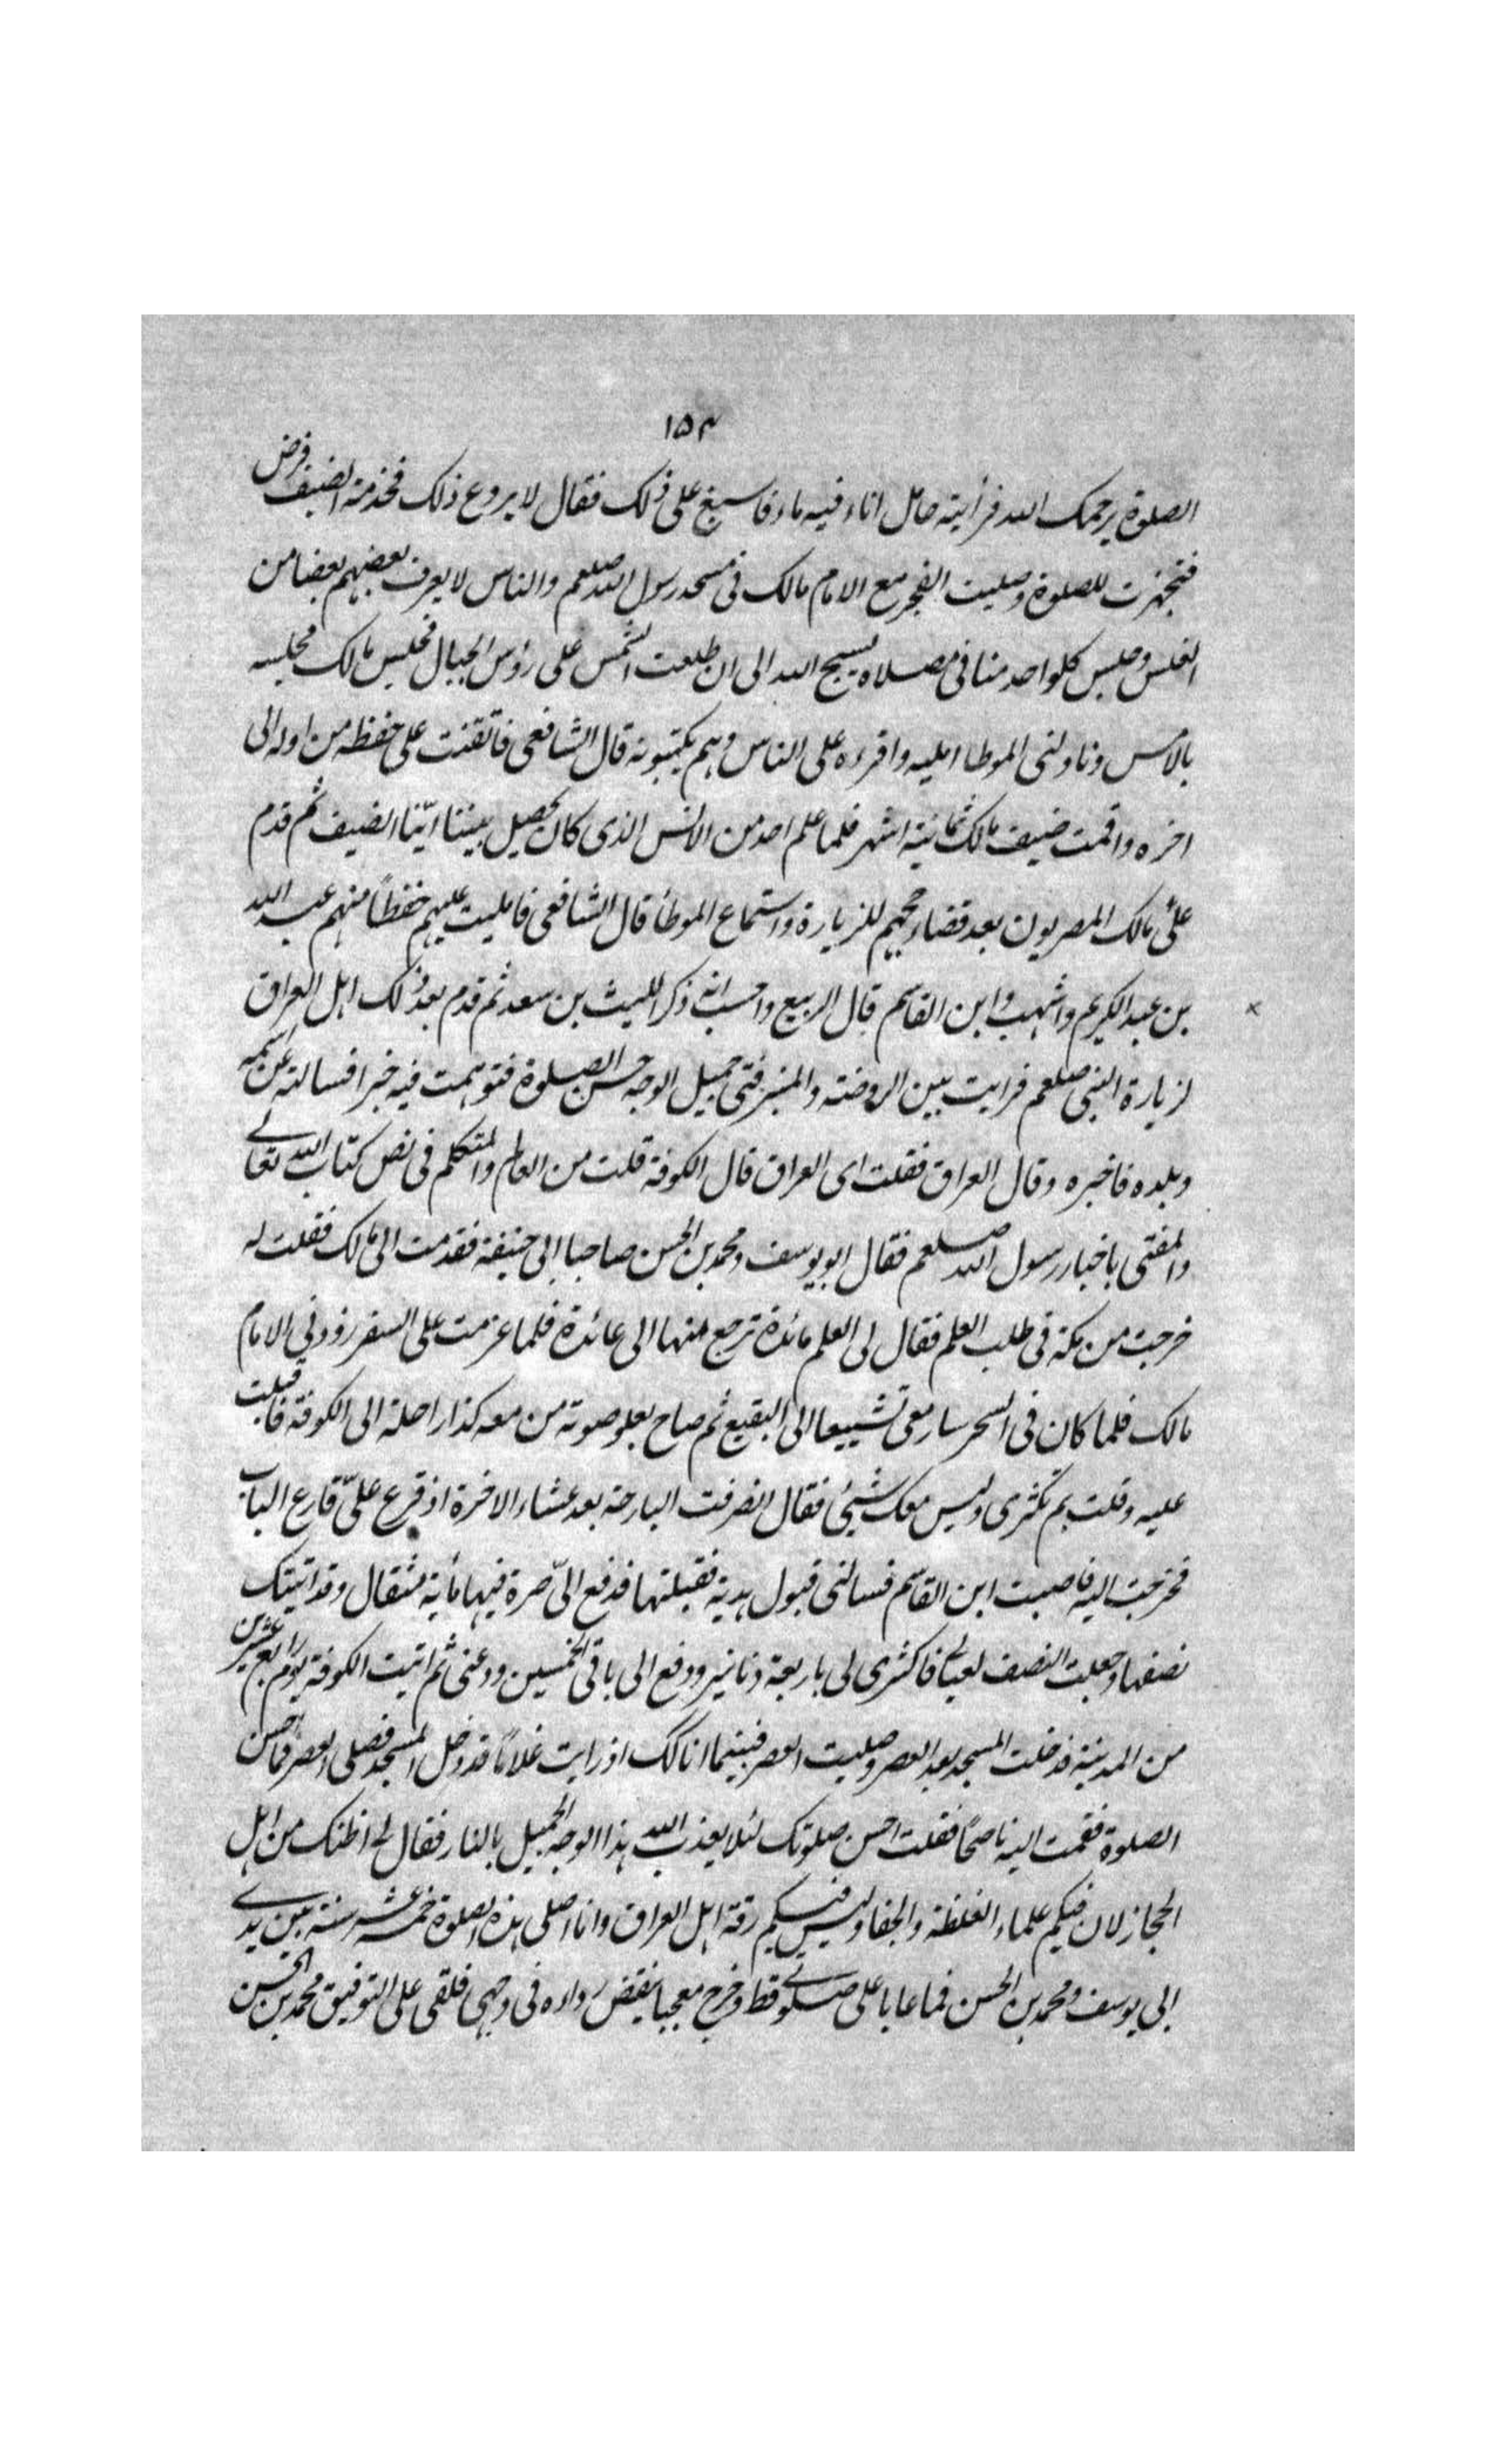 ۱۵۴
الصلوة يرحمك الله فرأيته حامل اناء فيه ماء فاسبغ على ذلك فقال لا يروع ذلك فخدمة الضيف فرض
فتجهزت للصلوة وصليت الفجر مع الامام مالك فى مسجد رسول الله صلعم والناس لا يعرف بعضهم بعضا من
الغلس وجلس كلواحد منا فى مصلاه يسبح الله الى ان طلعت الشمس على رؤس الجبال فجلس مالك مجلسه
بالامس وناولنى الموطا امليه واقرءه على الناس وهم يكتبونه قال الشافعى فاتقنت على حفظه من اوله الى
اخره واقمت ضيف مالك ثمانية اشهر فلما علم احد من الانس الذى كان يحصيل بيننا ايّنا الضيف ثم قدم
علىّ مالك المصريون بعد قضاء حجهم للزيارة واستماع الموطأ قال الشافعى فامليت عليهم حفظاً منهم عبد الله
بن عبد الكريم واشهب وابن القاسم قال الربيع واحسب انه ذكر الليث بن سعد ثم قدم بعد ذلك اهل العراق
لزيارة النبى صلعم فرايت بين الروضة والمنبر فتى جميل الوجه حسن الصلوة فتوهمت فيه خيرا فسالته عن اسمه
وبلده فاخبره وقال العراق فقلت اى العراق قال الكوفة قلت من العالم والمتكلم فى نص كتاب الله تعالى
والمفتى باخبار رسول الله صلعم فقال ابو يوسف ومحمد بن الحسن صاحبا ابى حنيفة فقدمت الى مالك فقلت له
خرجت من مكة فى طلب العلم فقال لى العلم مائدة ترجع منها الى عائدة فلما عزمت على السفر زودني الامام
مالك فلما كان فى السحر سار معى تشييعا الى البقيع ثم صاح بعلو صوته من معه كذا راحلة الى الكوفة فاقبلت
عليه وقلت بم تكترى وليس معك شيئ فقال انصرفت البارحة بعد عشاء الاخرة اذ قرع علىّ قارع الباب
فخرجت اليه فاصبت ابن القاسم فسالنى قبول هدية فقبلتها فدفع الىّ صرة فيها مأية مثقال وقد اتيتك
نصفها وجعلت النصف لعيالى فاكترى لى باربعة دنانير ودفع الى باقى الخمسين وودعنى ثم اتيت الكوفة يوم رابع عشرين
من المدينة فدخلت المسجد بعد العصر وصليت العصر فبينما انا كذلك اذ رايت غلاماً قد دخل المسجد فصلى العصر فما احسن
الصلوة فقمت اليه ناصحاً فقلت احسن صلوتك لئلا يعذب الله هذا الوجه الجميل بالنار فقال لى اظنك من اهل
الحجاز لان فيكم علماء الغلظة والجفا وليس فيكم رقة اهل العراق وانا اصلى هذه الصلوة خمسة عشر سنة بين يدى
ابى يوسف ومحمد بن الحسن فما عابا على صلوتى قط وخرج معجبا ينفض رداءه فى وجهى فلقى على التوفيق محمد بن الحسن